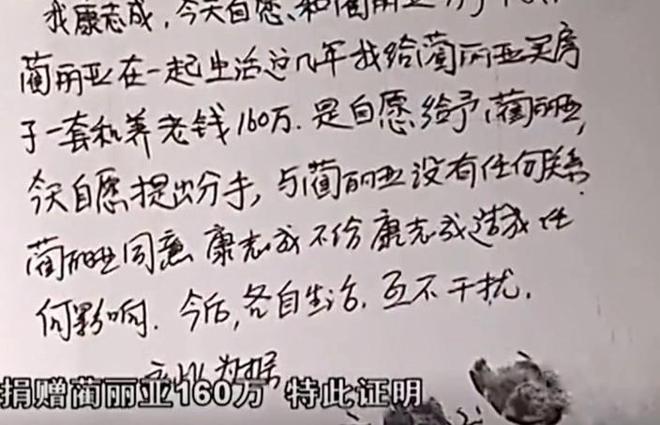 我康志成,今天自愿、和蔺丽亚分手
蔺丽亚在一起生活这几年我给蔺丽亚买房
子一套和养老钱160万.是自愿给予蔺丽亚,
今天自愿提出分手,与蔺丽亚没有任何关系.
蔺丽亚同意康志成不给康志成造成任
何影响.今后,各自生活.互不干扰.
立此为据
捐赠蔺丽亚160万 特此证明